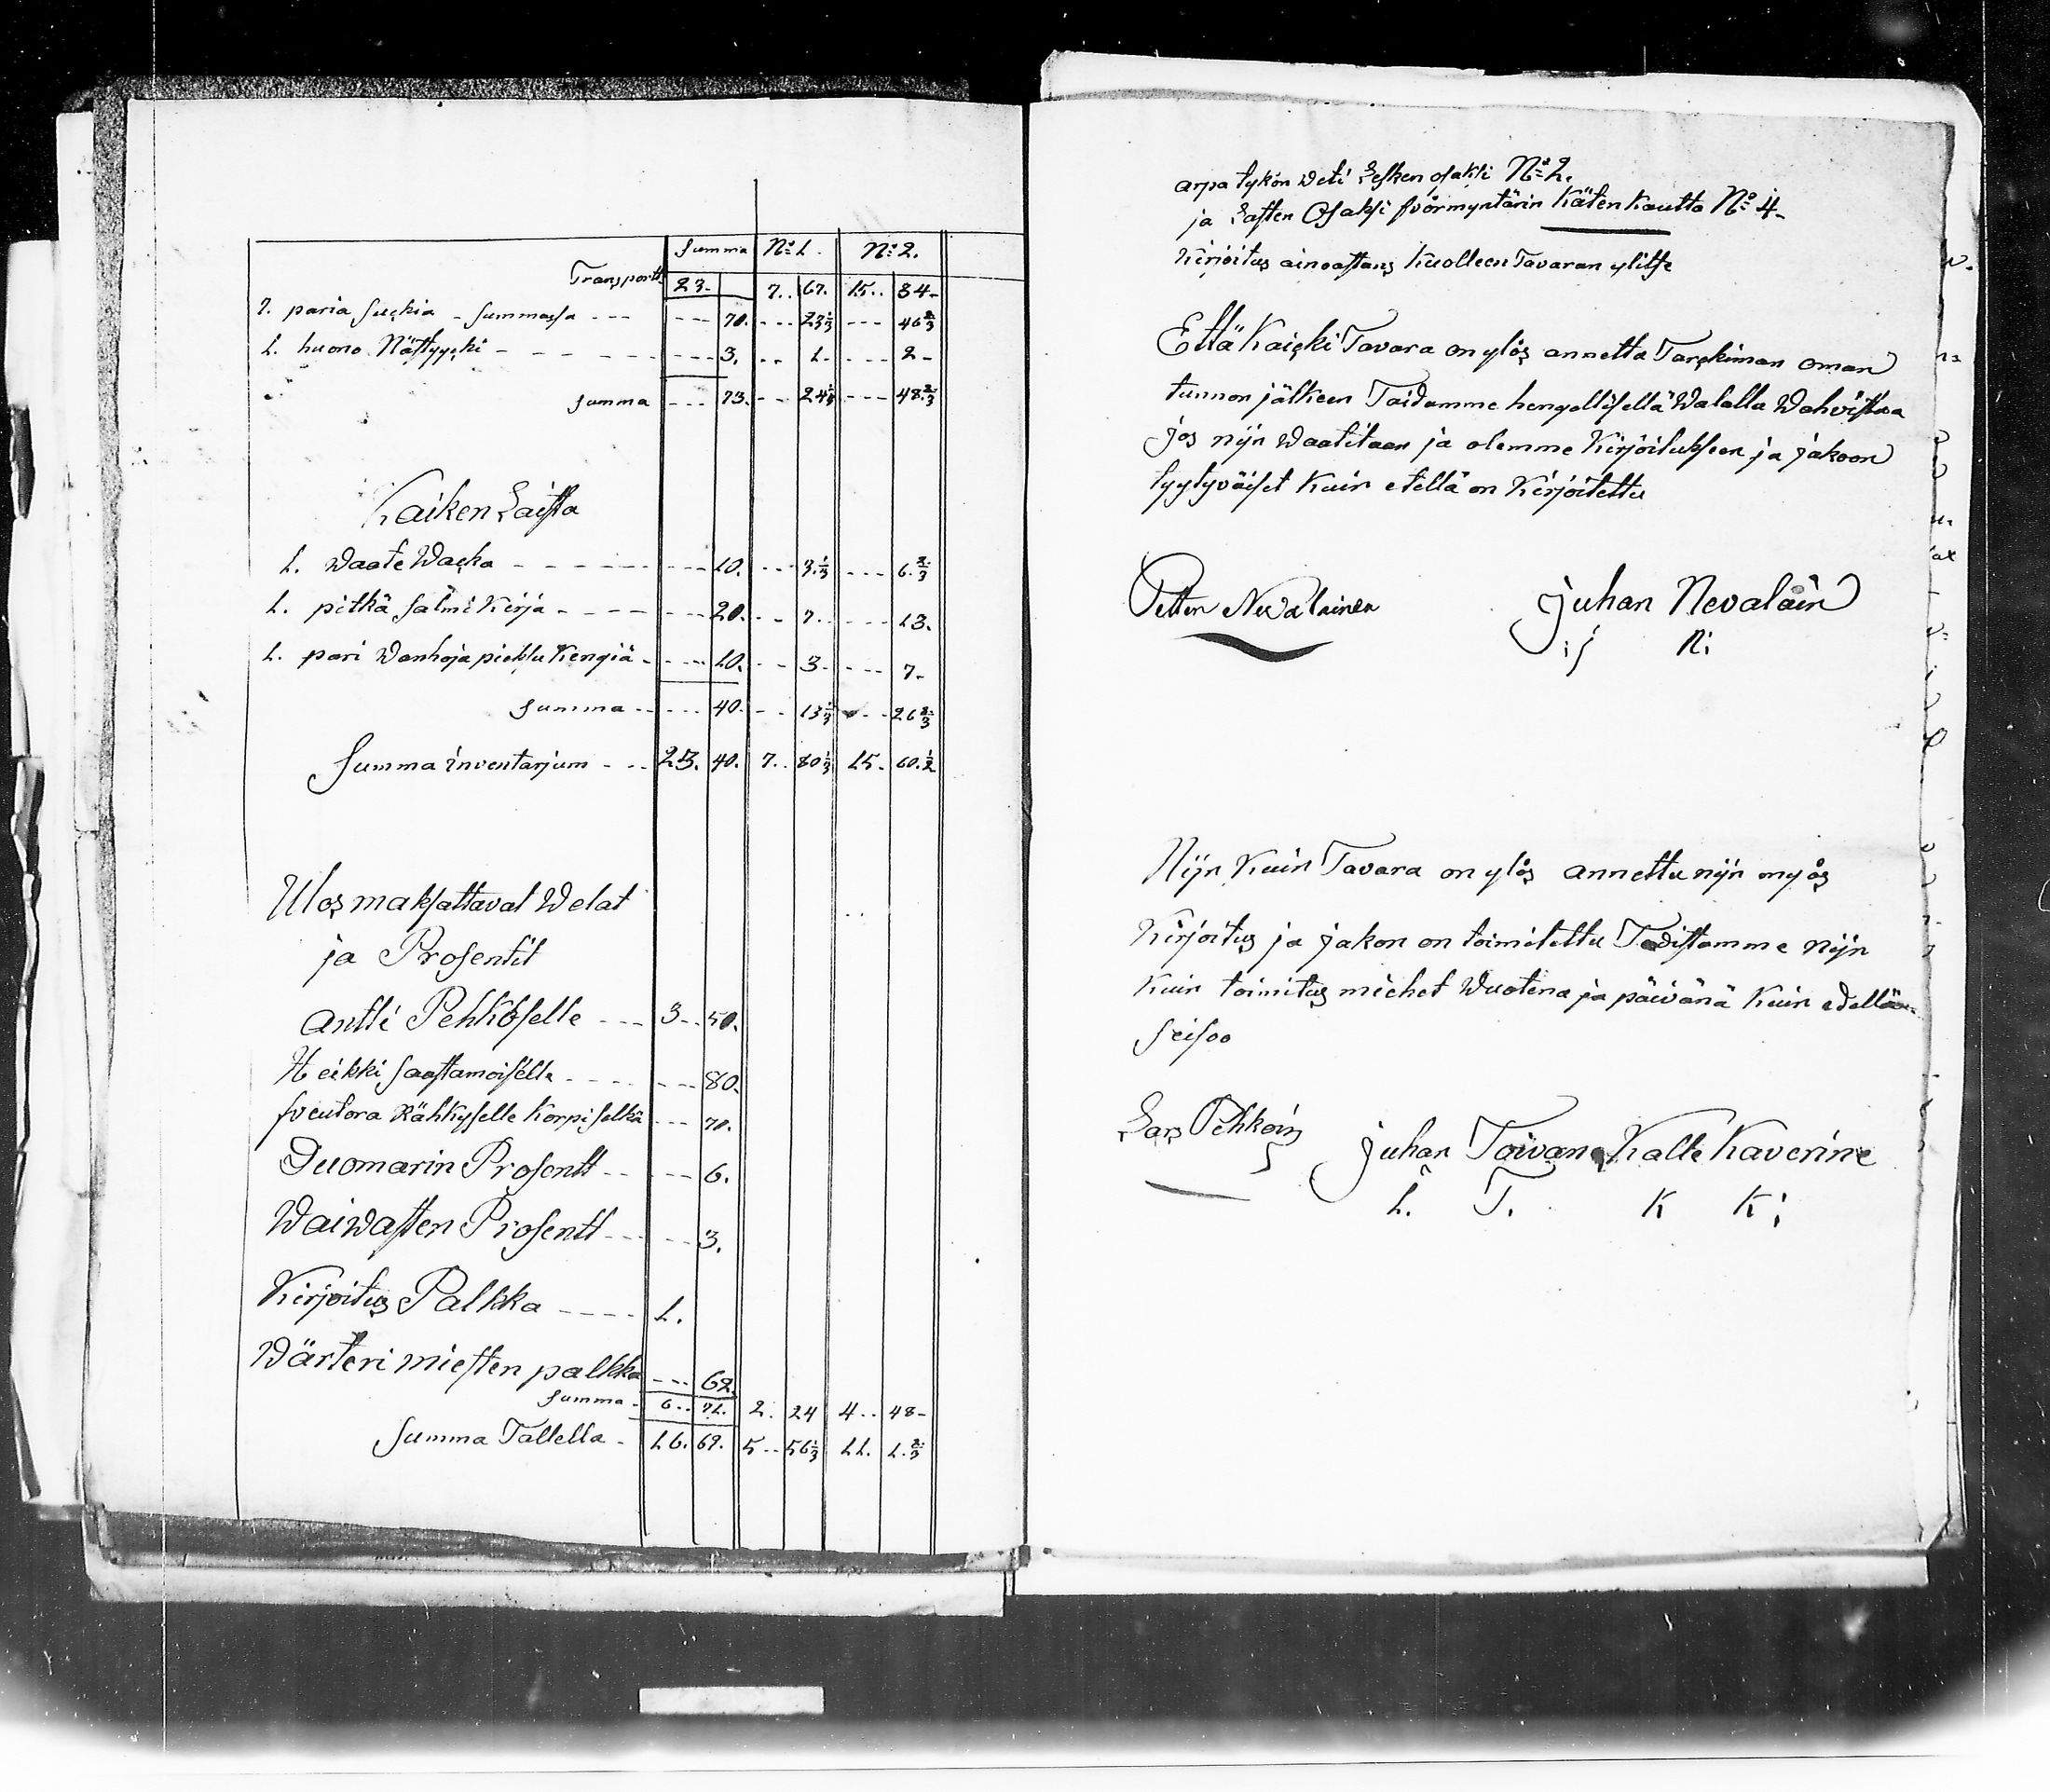 Summa No 1. No 2.
Transportt 23. 7.. 67. 15.. 34-
7. paria suckia - summassa - - - - - - 70. - - - 23 1/3 - - - 46 2/3
1. huono Nästyycki - - - - - - - - 3. - - 1. - - - 2 -
summa - - - 73. - - 24 1/3 - - - 48 2/3
Kaiken Laista
1. Waate Wacka - - - - - - - - 10. - - - 3. 1/3 - - - 6. 2/3
1. pitkä salmi Kirja - - - - - - - 20. - - 7. - - - 13.
1. pari Wanhoja pieksu Kengiä - - - - 10. - - 3. - - - 7-
summa - - - - 40. - - 13 1/3 - - - 26 2/3
Summa inventarjum - - - 23. 40. 7.. 80 1/3 15. 60. 1/2
Ulos maksattavat Welat
ja Prosentit
antti Pehköselle - - - 3 - - 50.
Heikki saastamoiselle - - - - - - - 80.
Rähkyselle Korpiselkä - - - 70.
Duomarin Prosentt - - - - - 6.
Waiwasten Prosentt - - - - - 3.
Kirjoitus Palkka - - - - 1.
Wärteri miesten palkka - - - 62.
Summa - 6.. 71. 2. 24 4.. 48-
Summa Tallella - 16. 69. 5.. 56 1/3 11. 1. 2/3
arpa tykön weti Lesken osaksi No 2.
ja Lasten Osaksi fvörmyntärin Käten Kautta No 1-
Kirjoitus ainoastans Kuolleen Tavaran ylitse
Että Kaicki Tavara on ylös annettu Tarckiman oman
tunnon jälkeen Taidamme hengellisellä Walalla Wahvistaa
jos nijn Waatitaan ja olemme Kirjoitukseen ja jakoon
tyytyväiset Kuin etellä on Kirjoitettu
Petter Newalainen Juhan Nevalain
i j Ni
Nijn Kuin Tavara on ylös annettu nijn myös
Kirjoitus ja jakon on toimitettu Todistamme nijn
Kuin toimitus miehet Wuotena ja päivänä Kuin edellä
seisoo
Lars Pehkoin Juhan Toivane Kalle Kaverine
I. T. K Ki